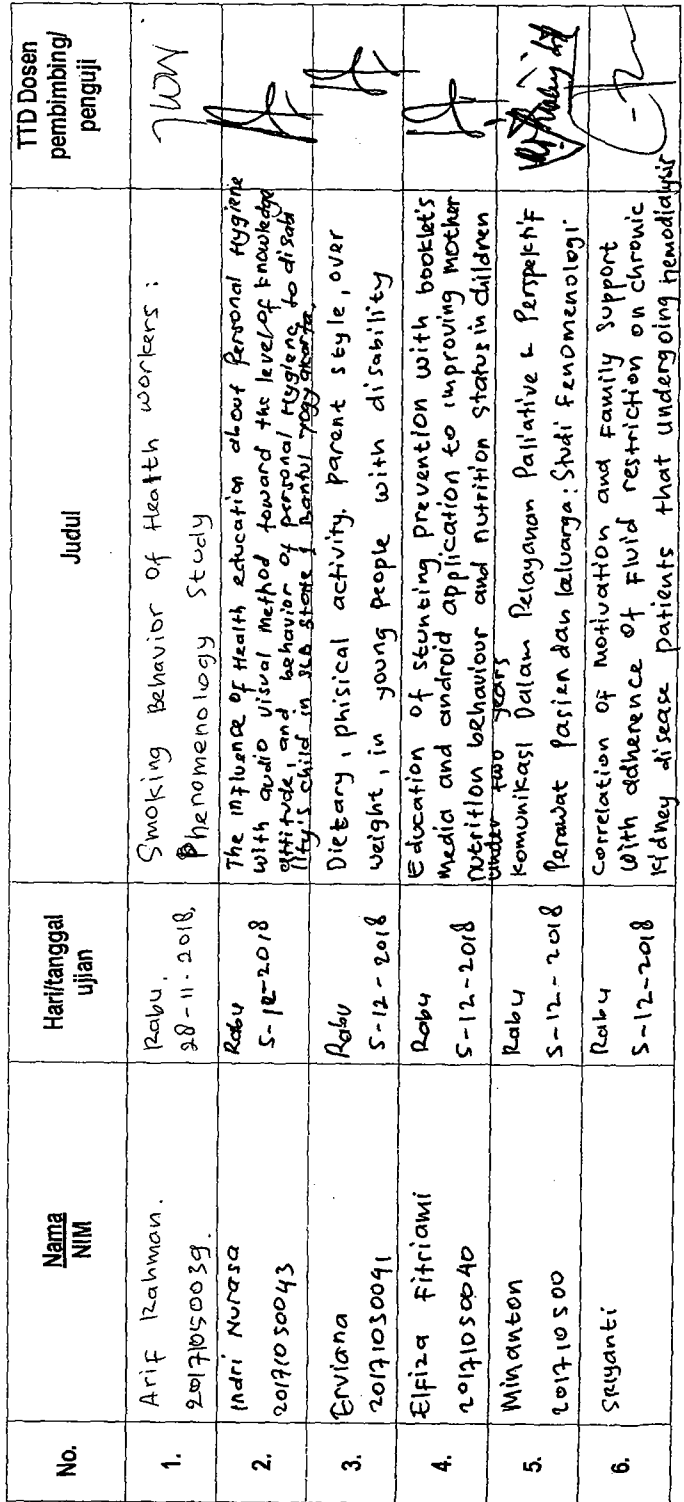 No.
Nama
NIM
Hari/tanggal
ujian
Judul
TTD Dosen
pembimbing/
penguji
1.
Arif Rahman.
20171050039.
Rabu,
28-11-2018,
Smoking Behavior of Health workers :
Phenomenology Study
2.
Indri Nurasa
20171050043
Rabu
5-12-2018
The Influence of Health education about Personal Hygiene
with audio visual Method toward the level of knowledge
attitude, and behavior of personal Hygiene to disabi
lity's child in SLB State 1 Bantul Yogyakarta.
3.
Erviana
20171050041
Rabu
5-12-2018
Dietary, phisical activity, parent style, over
weight, in young people with disability
4.
Elfiza Fitriami
20171050040
Rabu
5-12-2018
Education of stunting prevention with booklet's
Media and android application to improving mother
nutrition behaviour and nutrition status in children
under two years
5.
Minanton
201710500
Rabu
5-12-2018
Komunikasi Dalam Pelayanan Paliative & Perspektif
Perawat Pasien dan keluarga: Studi Fenomenologi
6.
Sriyanti
Rabu
5-12-2018
Correlation of Motivation and Family Support
With adherence of Fluid restriction on chronic
Kidney disease patients that undergoing hemodialysis